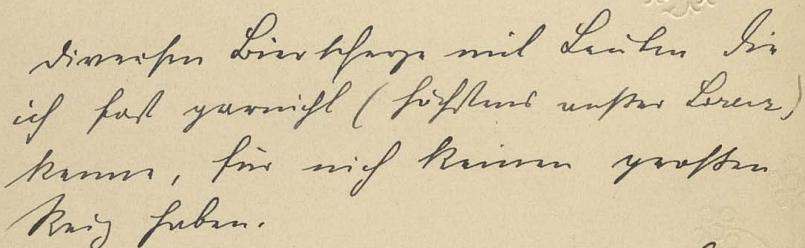 diversen Bierscherze mit Leuten die
ich fast garnicht (höchstens außer Lorenz)
kenne, für mich keinen großen
Reiz haben.